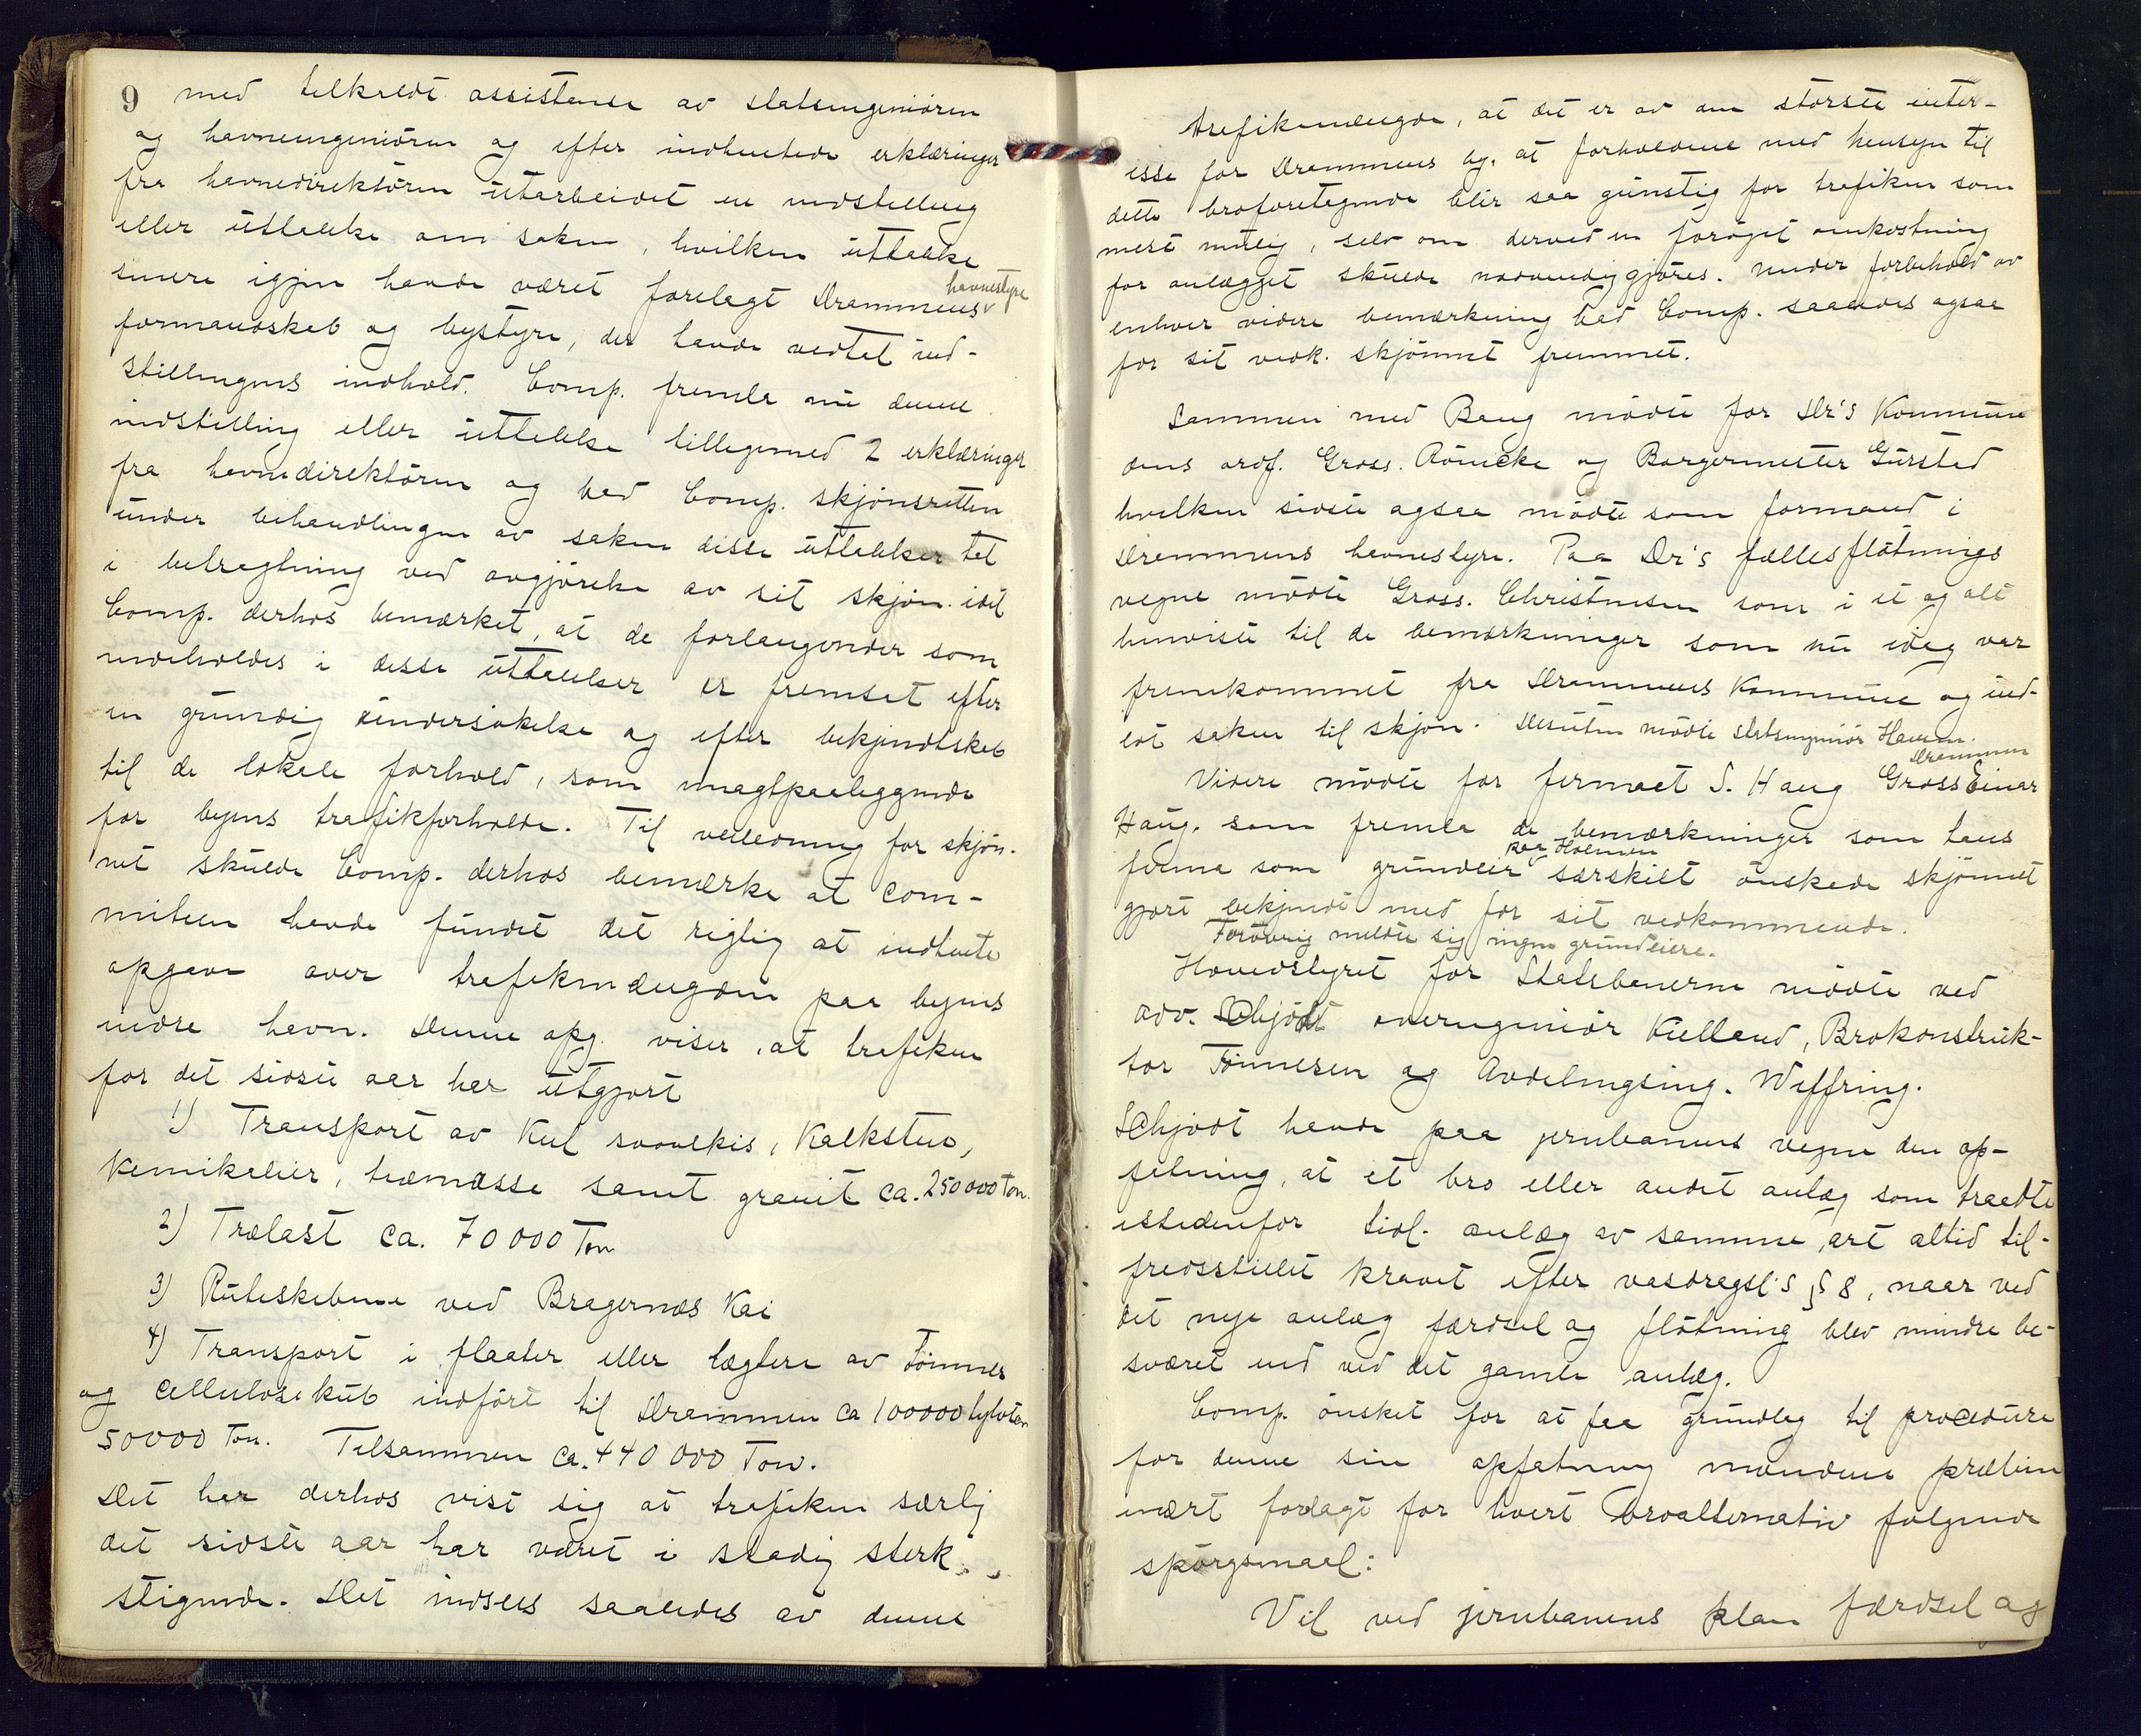 9 med tilkaldt assistanse av statsingeniøren
og havneingeniøren og efter indhentede erklæringer
fra havnedirektøren utarbeidet en indstilling
eller uttalelse om saken, hvilken uttalelse
senere igjen havde været forelagt Drammens havnestyre
formandskab og bystyre, der havde vedtat ind-
stillingens indhold. Comp. fremla nu denne
indstilling eller uttalelse tillegemed 2 erklæringer
fra havnedirektøren og bad Comp. skjønsretten
under behandlingen av saken disse uttalelser tat
i betragtning ved avgjørelse av sit skjøn. idet
Comp. derhos bemærket, at de forlangender som
indeholdes i disse uttalelser er fremsat efter
en grundig undersøkelse og efter bekjendtskab
til de lokale forhold, som magtpaaliggende
for byens trafikforholde. Til veiledning for skjøn-
net skulde Comp. derhos bemærke at com-
miteen havde fundet det rigtig at indhente
opgave over trafikmængden paa byens
indre havn. Denne opg. viser, at trafiken
for det sidste aar har utgjort
1) Transport av kul svovlkis, Kalksten,
Kemikalier, træmasse samt granit ca. 250000 Ton.
2) Trælast ca. 70 000 Ton
3) Ruteskibene ved Bragernæs Kai
4) Transport i flaater eller lægtere av tømmer
og cellulosekub indført til Drammen ca 100000 tylvter
50000 Ton. Tilsammen ca. 440 000 Ton.
Det har derhos vist sig at trafiken særlig
det sidste aar har været i stadig sterk
stigende. Det indsees saaledes av denne
trafikmængde, at det er av den største inter-
esse for Drammens by, at forholdene med hensyn til
dette broforetagende blir saa gunstig for trafiken som
mest mulig, selv om derved en forøget omkostning
for anlægget skulde nødvendiggjøres. Under forbehold av
enhver videre bemærkning bad Comp. saaledes ogsaa
for sit vedk. skjønnet fremmet.
Sammen med Bang mødte for Dr's Kommune
dens ordf. Gross. Rømcke og Borgermester Gursted
hvilken sidste ogsaa mødte som formand i
Drammens havnestyre. Paa Dr's fællesfløtnings
vegne mødte Gross. Christnesen som i et og alt
henviste til de bemærkninger som nu idag var
fremkommet fra Drammens Kommune og ind-
lot saken til skjøn. Desuten mødte statsingeniør Havem.
Drammen
Videre mødte for firmaet S. Haug Gross Einar
Haug. som fremla de bemærkninger som hans
firma som grundeier paa Holmen særskilt ønskede skjønnet
gjort bekjendt med for sit vedkommende.
Forøvrig meldte sig ingen grundeiere.
Hovedstyret for Statsbanerne mødte ved
adv. Schjødt overingeniør Kielland, Brokonstruk-
tør Tønnesen og Avdelingsing. Weffring.
Schjødt havde paa jernbanens vegne den op-
fatning, at et bro eller andet anlæg som traadte
istedenfor tidl. anlæg av samme art altid til-
fredsstillet kravet efter vasdragsl's § 8, naar ved
det nye anlæg færdsel og fløtning blev mindre be-
sværet end ved det gamle anlæg.
Comp. ønsket for at faa grundlag til procedure
for denne sin opfatning mændene prælim
inært forelagt for hvert broalternativ følgende
spørgsmaal:
Vil ved jernbanens plan færdsel og